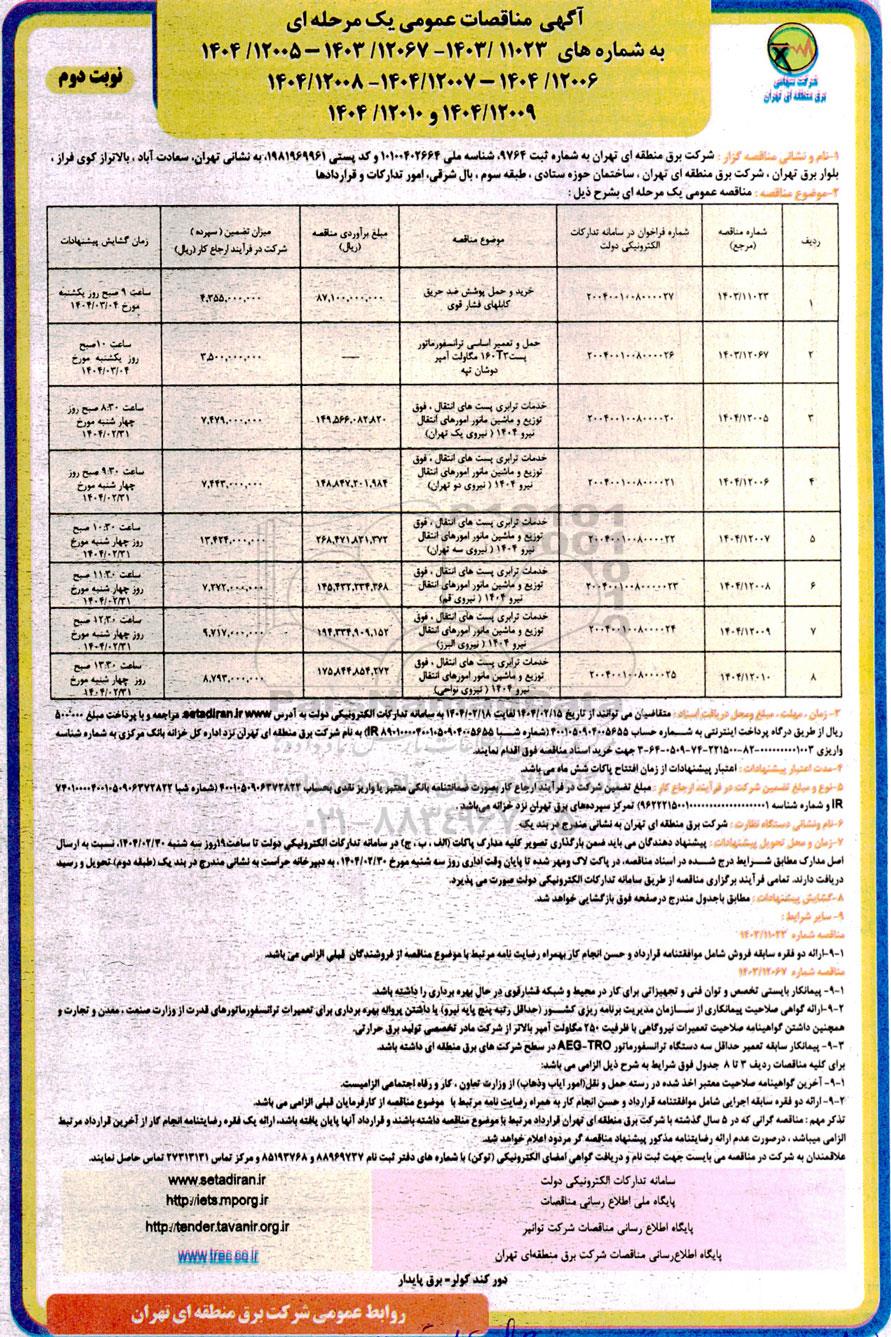 آگهی مناقصات عمومی یک مرحله ای
به شماره های ۱۱۰۲۳ /۱۴۰۳- ۱۲۰۶۷/ ۱۴۰۳ – ۱۲۰۰۵/ ۱۴۰۴
۱۲۰۰۶/ ۱۴۰۴ – ۱۴۰۴/۱۲۰۰۷- ۱۴۰۴/۱۲۰۰۸
۱۴۰۴/۱۲۰۰۹ و ۱۲۰۱۰/ ۱۴۰۴
نوبت دوم
شرکت سهامی
برق منطقه ای تهران
۱-نام و نشانی مناقصه گزار : شرکت برق منطقه ای تهران به شماره ثبت ۹۷۶۴، شناسه ملی ۱۰۱۰۰۴۰۲۶۶۴ و کد پستی ۱۹۸۱۹۶۹۹۶۱، به نشانی تهران، سعادت آباد ، بالاتراز کوی فراز ،
بلوار برق تهران ، شرکت برق منطقه ای تهران ، ساختمان حوزه ستادی ، طبقه سوم ، بال شرقی، امور تدارکات و قراردادها
۲-موضوع مناقصه : مناقصه عمومی یک مرحله ای بشرح ذیل :
ردیف | شماره مناقصه (مرجع) | شماره فراخوان در سامانه تدارکات الکترونیکی دولت | موضوع مناقصه | مبلغ برآوردی مناقصه (ریال) | میزان تضمین ( سپرده ) شرکت در فرآیند ارجاع کار (ریال) | زمان گشایش پیشنهادات
۱ | ۱۴۰۳/۱۱۰۲۳ | ۲۰۰۴۰۰۱۰۰۸۰۰۰۰۲۷ | خرید و حمل پوشش ضد حریق کابلهای فشار قوی | ۸۷,۱۰۰,۰۰۰,۰۰۰ | ۴,۳۵۵,۰۰۰,۰۰۰ | ساعت ۹ صبح روز یکشنبه مورخ ۱۴۰۴/۰۳/۰۴
۲ | ۱۴۰۳/۱۲۰۶۷ | ۲۰۰۴۰۰۱۰۰۸۰۰۰۰۲۶ | حمل و تعمیر اساسی ترانسفورماتور پست T۳ ۱۶۰ مگاولت آمپر دوشان تپه | —— | ۳,۵۰۰,۰۰۰,۰۰۰ | ساعت ۱۰صبح روز یکشنبه مورخ ۱۴۰۴/۰۳/۰۴
۳ | ۱۴۰۴/۱۲۰۰۵ | ۲۰۰۴۰۰۱۰۰۸۰۰۰۰۲۰ | خدمات ترابری پست های انتقال ، فوق توزیع و ماشین مانور امورهای انتقال نیرو ۱۴۰۴ ( نیروی یک تهران) | ۱۴۹,۵۶۶,۰۸۲,۸۲۰ | ۷,۴۷۹,۰۰۰,۰۰۰ | ساعت ۸:۳۰ صبح روز چهار شنبه مورخ ۱۴۰۴/۰۲/۳۱
۴ | ۱۴۰۴/۱۲۰۰۶ | ۲۰۰۴۰۰۱۰۰۸۰۰۰۰۲۱ | خدمات ترابری پست های انتقال ، فوق توزیع و ماشین مانور امورهای انتقال نیرو ۱۴۰۴ ( نیروی دو تهران) | ۱۴۸,۸۴۷,۲۰۱,۹۸۴ | ۷,۴۴۳,۰۰۰,۰۰۰ | ساعت ۹:۳۰ صبح روز چهار شنبه مورخ ۱۴۰۴/۰۲/۳۱
۵ | ۱۴۰۴/۱۲۰۰۷ | ۲۰۰۴۰۰۱۰۰۸۰۰۰۰۲۲ | خدمات ترابری پست های انتقال ، فوق توزیع و ماشین مانور امورهای انتقال نیرو ۱۴۰۴ ( نیروی سه تهران) | ۲۶۸,۴۷۱,۸۲۱,۳۷۲ | ۱۳,۴۲۴,۰۰۰,۰۰۰ | ساعت ۱۰:۳۰ صبح روز چهار شنبه مورخ ۱۴۰۴/۰۲/۳۱
۶ | ۱۴۰۴/۱۲۰۰۸ | ۲۰۰۴۰۰۱۰۰۸۰۰۰۰۲۳ | خدمات ترابری پست های انتقال ، فوق توزیع و ماشین مانور امورهای انتقال نیرو ۱۴۰۴ ( نیروی قم) | ۱۴۵,۴۳۲,۲۳۴,۳۶۸ | ۷,۲۷۲,۰۰۰,۰۰۰ | ساعت ۱۱:۳۰ صبح روز چهار شنبه مورخ ۱۴۰۴/۰۲/۳۱
۷ | ۱۴۰۴/۱۲۰۰۹ | ۲۰۰۴۰۰۱۰۰۸۰۰۰۰۲۴ | خدمات ترابری پست های انتقال ، فوق توزیع و ماشین مانور امورهای انتقال نیرو ۱۴۰۴ ( نیروی البرز) | ۱۹۴,۳۳۴,۹۰۹,۱۵۲ | ۹,۷۱۷,۰۰۰,۰۰۰ | ساعت ۱۲:۳۰ صبح روز چهار شنبه مورخ ۱۴۰۴/۰۲/۳۱
۸ | ۱۴۰۴/۱۲۰۱۰ | ۲۰۰۴۰۰۱۰۰۸۰۰۰۰۲۵ | خدمات ترابری پست های انتقال ، فوق توزیع و ماشین مانور امورهای انتقال نیرو ۱۴۰۴ ( نیروی نواحی) | ۱۷۵,۸۴۴,۸۵۴,۲۷۲ | ۸,۷۹۳,۰۰۰,۰۰۰ | ساعت ۱۳:۳۰ صبح روز چهار شنبه مورخ ۱۴۰۴/۰۲/۳۱
۳- زمان ، مهلت ، مبلغ ومحل دریافت اسناد : متقاضیان می توانند از تاریخ ۱۴۰۴/۰۲/۱۵ لغایت ۱۴۰۴/۰۲/۱۸ به سامانه تدارکات الکترونیکی دولت به آدرس setadiran.ir www. مراجعه و با پرداخت مبلغ ۵۰۰،۰۰۰
ریال از طریق درگاه پرداخت اینترنتی به شماره حساب ۴۰۰۱۰۵۰۹۰۴۰۰۵۶۵۵ (شماره شبا IR ۸۹۰۱۰۰۰۰۴۰۰۱۰۵۰۹۰۴۰۰۵۶۵۵) به نام شرکت برق منطقه ای تهران نزد اداره کل خزانه بانک مرکزی به شماره شناسه
جهت خرید اسناد مناقصه فوق اقدام نمایند.
۴-مدت اعتبار پیشنهادات : اعتبار پیشنهادات از زمان افتتاح پاکات شش ماه می باشد.
۵-نوع و مبلغ تضمین شرکت در فرآیند ارجاع کار : مبلغ تضمین شرکت در فرآیند ارجاع کار بصورت ضمانتنامه بانکی معتبر یا واریز نقدی بحساب ۴۰۰۱۰۵۰۹۰۶۳۷۲۸۲۲ (شماره شبا
تمرکز سپرده‌های برق تهران نزد خزانه می‌باشد.
۶-نام ونشانی دستگاه نظارت : شرکت برق منطقه ای تهران به نشانی مندرج در بند یک
۷-زمان و محل تحویل پیشنهادات : پیشنهاد دهندگان می باید ضمن بارگذاری تصویر کلیه مدارک پاکات (الف ، ب ، ج) در سامانه تدارکات الکترونیکی دولت تا ساعت۱۹روز سه شنبه ۱۴۰۴/۰۲/۳۰، نسبت به ارسال
اصل مدارک مطابق شرایط درج شده در اسناد مناقصه، در پاکت لاک ومهر شده تا پایان وقت اداری روز سه شنبه مورخ ۱۴۰۴/۰۲/۳۰ ، به دبیرخانه حراست به نشانی مندرج در بند یک (طبقه دوم) تحویل و رسید
دریافت دارند. تمامی فرآیند برگزاری مناقصه از طریق سامانه تدارکات الکترونیکی دولت صورت می پذیرد.
۸-گشایش پیشنهادات : مطابق باجدول مندرج درصفحه فوق بازگشایی خواهد شد.
۹- سایر شرایط :
مناقصه شماره ۱۴۰۳/۱۱۰۲۳
۹-۱-ارائه دو فقره سابقه فروش شامل موافقتنامه قرارداد و حسن انجام کار بهمراه رضایت نامه مرتبط با موضوع مناقصه از فروشندگان قبلی الزامی می باشد.
مناقصه شماره ۱۴۰۳/۱۲۰۶۷
۹-۱- پیمانکار بایستی تخصص و توان فنی و تجهیزاتی برای کار در محیط و شبکه فشارقوی در حال بهره برداری را داشته باشد.
۹-۲-ارائه گواهی صلاحیت پیمانکاری از سازمان مدیریت برنامه ریزی کشور (حداقل رتبه پنج پایه نیرو) یا داشتن پروانه بهره برداری برای تعمیرات ترانسفورماتورهای قدرت از وزارت صنعت ، معدن و تجارت و
همچنین داشتن گواهینامه صلاحیت تعمیرات نیروگاهی با ظرفیت ۲۵۰ مگاولت آمپر بالاتر از شرکت مادر تخصصی تولید برق حرارتی.
۹-۳- پیمانکار سابقه تعمیر حداقل سه دستگاه ترانسفورماتور AEG-TRO در سطح شرکت های برق منطقه ای داشته باشد.
برای کلیه مناقصات ردیف ۳ تا ۸ جدول فوق شرایط به شرح ذیل الزامی می باشد:
۹-۱- آخرین گواهینامه صلاحیت معتبر اخذ شده در رسته حمل و نقل(امور ایاب وذهاب) از وزارت تعاون ، کار و رفاه اجتماعی الزامیست.
۹-۲- ارائه دو فقره سابقه اجرایی شامل موافقتنامه قرارداد و حسن انجام کار به همراه رضایت نامه مرتبط با موضوع مناقصه از کارفرمایان قبلی الزامی می باشد.
تذکر مهم : مناقصه گرانی که در ۵ سال گذشته با شرکت برق منطقه ای تهران قرارداد مرتبط با موضوع مناقصه داشته باشند و قرارداد آنها پایان یافته باشد، ارائه یک فقره رضایتنامه انجام کار از آخرین قرارداد مرتبط
الزامی میباشد ، درصورت عدم ارائه رضایتنامه مذکور پیشنهاد مناقصه گر مردود اعلام خواهد شد.
علاقمندان به شرکت در مناقصه می بایست جهت ثبت نام و دریافت گواهی امضای الکترونیکی (توکن) با شماره های دفتر ثبت نام ۸۸۹۶۹۷۳۷ و ۸۵۱۹۳۷۶۸ و مرکز تماس ۲۷۳۱۳۱۳۱ تماس حاصل نمایند.
سامانه تدارکات الکترونیکی دولت www.setadiran.ir
پایگاه ملی اطلاع رسانی مناقصات http://iets.mporg.ir
پایگاه اطلاع رسانی مناقصات شرکت توانیر http://tender.tavanir.org.ir
پایگاه اطلاع‌رسانی مناقصات شرکت برق منطقه‌ای تهران www.trec.co.ir
دور کند کولر- برق پایدار
روابط عمومی شرکت برق منطقه ای تهران